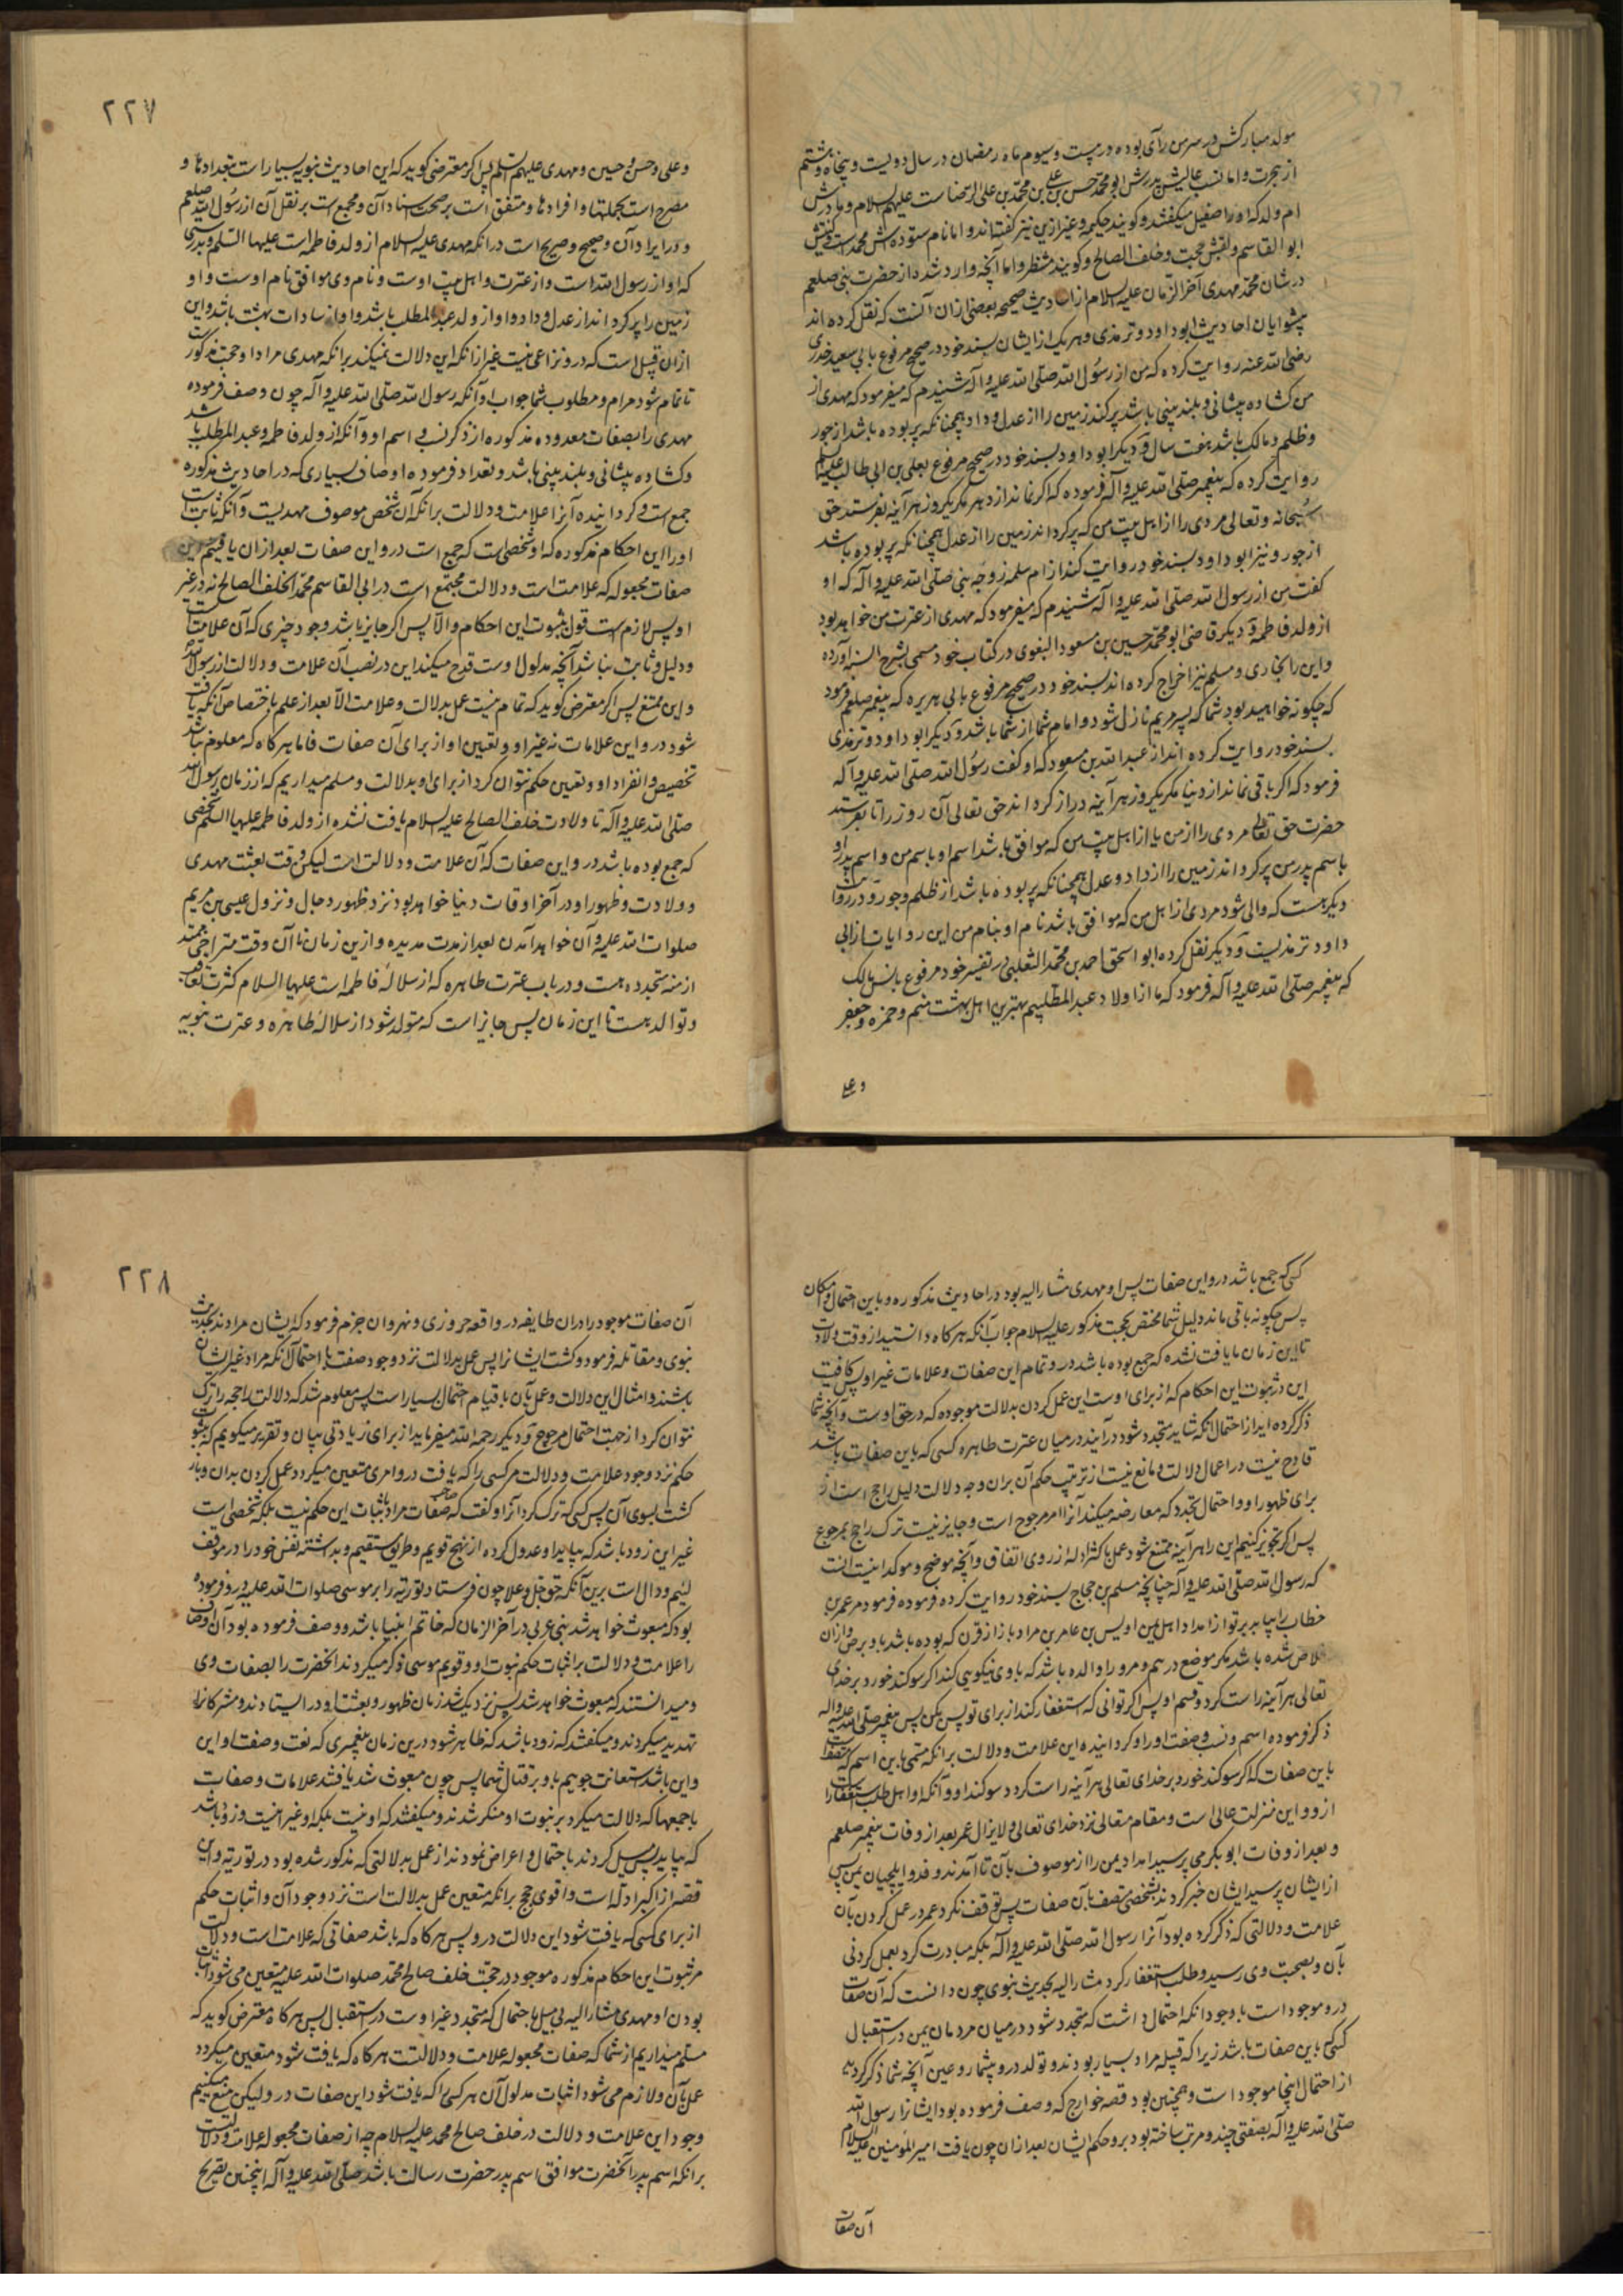 مولد مبارکش در سر من رآی بوده در بیست و سیوم ماه رمضان در سال دویست و پنجاه و هشتم
از هجرت و اما نسب عالیش پدرش ابو محمد حسن بن علی بن محمد بن علی الرضا است علیهم السلام و مادرش
ام ولد که او را صقیل میگفتند و گویند حکیمه و غیر ازین نیز گفته‌اند و اما نام ستوده‌اش محمد است و کنیتش
ابو القاسم و لقبش حجت و خلف الصالح و گویند منتظر و اما آنچه وارد شد از حضرت نبی صلعم
در شان محمد مهدی آخر الزمان علیه السلام از احادیث صحیحه بعضی ازان آنست که نقل کرده‌اند
پیشوایان احادیث ابو داود و ترمذی و هر یک از ایشان بسند خود در صحیح مرفوع بابی سعید خدری
رضی الله عنه روایت کرده که من از رسول الله صلی الله علیه و آله شنیدم که میفرمود که مهدی از
من کشاده پیشانی و بلند بینی باشد پر کند زمین را از عدل و داد همچنانکه پر بوده باشد از جور
و ظلم و مالک باشد هفت سال و دیگر ابو داود بسند خود در صحیح مرفوع بعلی بن ابی طالب علیه السلم
روایت کرده که پیغمبر صلی الله علیه و آله فرموده که اگر نماند از دهر مگر یکروز هر آینه بفرستد حق
سبحانه و تعالی مردی را از اهل بیت من که پر کرداند زمین را از عدل همچنانکه پر بوده باشد
از جور و نیز ابو داود بسند خود روایت کند از ام سلمه زوجه نبی صلی الله علیه و آله که او
کفت من از رسول الله صلی الله علیه و آله شنیدم که میفرمود که مهدی از عترت من خواهد بود
از ولد فاطمه و دیگر قاضی ابو محمد حسین بن مسعود البغوی در کتاب خود مسمی بشرح السنه آورده
و این را بخاری و مسلم نیز اخراج کرده‌اند بسند خود در صحیح مرفوع بابی هریره که پیغمبر صلعم فرمود
که چگونه خواهید بود شما که پسر مریم نازل شود و امام شما از شما باشد و دیگر ابو داود و ترمذی
بسند خود روایت کرده‌اند از عبد الله بن مسعود که او گفت رسول الله صلی الله علیه و آله
فرمود که اگر باقی نماند از دنیا مگر یکروز هر آینه دراز کرداند حق تعالی آن روز را تا بفرستد
حضرت حق تعالی مردی را از من یا از اهل بیت من که موافق باشد اسم او باسم من و اسم پدر او
باسم پدر من پر کرداند زمین را از داد و عدل همچنانکه پر بوده باشد از ظلم و جور و در روایت
دیگر هست که والی شود مردی از اهل من که موافق باشد نام او بنام من این روایات از ابی
داود ترمذیست و دیگر نقل کرده ابو اسحق احمد بن محمد الثعلبی در تفسیر خود مرفوع بانس مالک
که پیغمبر صلی الله علیه و آله فرمود که ما از اولاد عبد المطلبیم بهترین اهل بهشت منم و حمزه و جعفر
و علی
۲۲۷
و علی و حسن و حسین و مهدی علیهم السلم پس اگر معترضی گوید که این احادیث نبویه بسیار است بتعدادها و
مصرح است بجملتها و افرادها و متفق است بر صحت اسناد آن و مجمع است بر نقل آن از رسول الله صلعم
و در ایراد آن و صحیح و صریح است در انکه مهدی علیه السلام از ولد فاطمه است علیها السلم و بدرستی
که او از رسول الله است و از عترت و اهل بیت اوست و نام وی موافق نام اوست و او
زمین را پر کرداند از عدل و داد و او از ولد عبد المطلب باشد و او از سادات بهشت باشد و این
ازان قبیل است که درو نزاعی نیست غیر از انکه این دلالت نمیکند بر انکه مهدی مراد او حجت مذکور است
تا تمام شود مرام و مطلوب شما جواب و آنکه رسول الله صلی الله علیه و آله چون وصف فرموده
مهدی را بصفات معدوده مذکوره از ذکر نسب و اسم او و آنکه از ولد فاطمه و عبد المطلب باشد
و کشاده پیشانی و بلند بینی باشد و تعداد فرموده اوصاف بسیاری که در احادیث مذکوره
جمع است و کردانیده آنرا علامت و دلالت بر انکه آن شخص موصوف مهدیست و آنکه ثابت است
او را این احکام مذکوره که او شخصی است که جمع است درو این صفات بعد ازان یافتیم این
صفات مجعوله که علامت است و دلالت مجتمع است در ابی القاسم محمد الخلف الصالح نه در غیر
او پس لازم است قول بثبوت این احکام و الا پس اگر جایز باشد وجود چیزی که آن علامت است
و دلیل و ثابت نباشد آنچه مدلول اوست قدح میکند این در نصب آن علامت و دلالت از رسول الله
و این ممتنع پس اگر معترض گوید که تمام نیست عمل بدلالت و علامت الا بعد از علم باختصاص آنکه یافت
شود درو این علامات نه غیر او و تعیین او از برای آن صفات فاما هرگاه که معلوم نباشد
تخصیص و انفراد او و تعیین حکم نتوان کرد از برای او بدلالت و مسلم میداریم که از زمان رسول الله
صلی الله علیه و آله تا ولادت خلف الصالح علیه السلام یافت نشده از ولد فاطمه علیها السلم شخصی
که جمع بوده باشد درو این صفات که آن علامت و دلالت است لیکن وقت بعثت مهدی
و ولادت و ظهور او در آخر اوقات دنیا خواهد بود نزد ظهور دجال و نزول عیسی بن مریم
صلوات الله علیه و آن خواهد آمدن بعد از مدت مدیده و ازین زمان تا آن وقت متراخی ممتد
ازمنه متجدده هست و در باب عترت طاهره که از سلاله فاطمه است علیها السلام کثرت تعاقب
و توالد هست تا این زمان پس جایز است که متولد شود از سلاله طاهره و عترت نبویه
کسی که جمع باشد درو این صفات پس او مهدی مشار الیه بود در احادیث مذکوره و با این احتمال و امکان
پس چگونه باقی ماند دلیل شما مختص بحجت مذکور علیه السلام جواب آنکه هرگاه دانستید از وقت ولادت
تا این زمان ما یافت نشده که جمع بوده باشد درو تمام این صفات و علامات غیر او پس کافیست
این در ثبوت این احکام که از برای اوست این عمل کردن بدلالت موجوده که در حق اوست و آنچه شما
ذکر کرده‌اید از احتمال انکه شاید متجدد شود در آینده در میان عترت طاهره کسی که باین صفات باشد
قادح نیست در اعمال دلالت و مانع نیست از ترتیب حکم آن بران وجه دلالت دلیل راجح است از
برای ظهور او و احتمال تجدد که معارضه میکند آنرا امر مرجوح است و جایز نیست ترک راجح بمرجوح
پس اگر تجویز کنیم این را هر آینه ممتنع شود عمل باکثر ادله از روی اتفاق و آنچه موضح و موکد اینست آنست
که رسول الله صلی الله علیه و آله چنانچه مسلم بن حجاج بسند خود روایت کرده فرموده فرمود مر عمر بن
خطاب را بیاید بر تو از امداد اهل یمن اویس بن عامر بن مراد باز از قرن که بوده باشد باو برص و ازان
خلاص شده باشد مگر موضع درهم و مرو را والده باشد که باوی نیکویی کند اگر سوگند خورد بر خدای
تعالی هر آینه راست کرد و قسم او پس اگر توانی که استغفار کند از برای تو پس بکن پس پیغمبر صلی الله علیه و آله
ذکر فرموده اسم و نسب و صفت او را و کردانیده این علامت و دلالت بر انکه مسمی باین اسم که متصف است
باین صفات که اگر سوگند خورد بر خدای تعالی هر آینه راست کردد سوگند او و آنکه او اهل طلب استغفار است
ازو و این منزلت عالی است و مقام متعالی نزد خدای تعالی و لایزال عمر بعد از وفات پیغمبر صلعم
و بعد از وفات ابو بکر می پرسید امداد یمن را از موصوف بآن تا آمدند وفد و ایلچیان یمن پس
از ایشان پرسید ایشان خبر کردند بشخصی متصف بآن صفات پس توقف نکرد عمر در عمل کردن بآن
علامت و دلالتی که ذکر کرده بود آنرا رسول الله صلی الله علیه و آله بلکه مبادرت کرد بعمل کردنی
بآن و بصحبت وی رسید و طلب استغفار کرد مشار الیه بحدیث نبوی چون دانست که آن صفات
درو موجود است با وجود انکه احتمال داشت که متجدد شود در میان مردمان یمن در استقبال
کسی که باین صفات باشد زیرا که قبیله مراد بسیار بودند و تولد درو بیشمار و عین آنچه شما ذکر کردید
از احتمال اینجا موجود است و همچنین بود قصه خوارج که وصف فرموده بود ایشانرا رسول الله
صلی الله علیه و آله بصفتی چند و مرتب ساخته بود برو حکم ایشان بعد ازان چون یافت امیر المؤمنین علیه السلام
آن صفات
۲۲۸
آن صفات موجود را دران طایفه در واقعه حروری و نهروان جزم فرمود که ایشان مرادند بحدیث
نبوی و مقاتله فرمود و کشت ایشانرا پس عمل بدلالت نزد وجود صفت با احتمال آنکه مراد غیر ایشان
باشند و امثال این دلالت و عمل بآن با قیام احتمال بسیار است پس معلوم شد که دلالت راجحه را ترک
نتوان کرد از جهت احتمال مرجوح و دیگر رحمه الله میفرماید از برای زیادتی بیان و تقریر میگویم که ثبوت
حکم نزد وجود علامت و دلالت مر کسی را که یافت درو امری متعین میکردد عمل کردن بدان و باز
کشت بسوی آن پس کسی که ترک کرد آنرا و گفت که صاحب صفات مراد باثبات این حکم نیست بلکه شخصی است
غیر این زود باشد که بیاید او عدول کرده از نهج قویم و طریق مستقیم و بداشته نفس خود را در موقف
لئیم و دال است برین آنکه حق جل و علا چون فرستاد توریة را بر موسی صلوات الله علیه درو فرموده
بود که مبعوث خواهد شد نبی عربی در آخر الزمان که خاتم انبیا باشد و وصف فرموده بود آن اوصاف
را علامت و دلالت بر اثبات حکم نبوت او و قوم موسی ذکر میکردند آنحضرت را بصفات وی
و میدانستند که مبعوث خواهد شد پس نزدیک شد زمان ظهور و بعثت او در ایستادند و مشرکانرا
تهدید میکردند و میگفتند که زود باشد که ظاهر شود درین زمان پیغمبری که نعت و صفت او این
و این باشد استعانت جوییم باو بر قتال شما پس چون مبعوث شد یافتند علامات و صفات
باجمعها که دلالت میکرد بر نبوت او منکر شدند و میگفتند که او نیست بلکه او غیر اینست و زود باشد
که بیاید پس میل کردند باحتمال و اعراض نمودند از عمل بدلالتی که مذکور شده بود در توریة و این
قصه از اکبر ادله است و اقوی حجج بر انکه متعین عمل بدلالت است نزد وجود آن و اثبات حکم
از برای کسی که یافت شود این دلالت درو پس هرگاه که باشد صفاتی که علامت است و دلالت
مر ثبوت این احکام مذکوره موجود در حجت خلف صالح محمد صلوات الله علیه متعین می شود اثبات
بودن او مهدی مشار الیه بی میل باحتمال که متجدد غیر اوست در استقبال پس هرگاه معترض گوید که
مسلم میداریم از شما که صفات مجعوله علامت و دلالتست هرگاه که یافت شود متعین میکردد
عمل بآن و لازم می شود اثبات مدلول آن هر کسی را که یافت شود این صفات درو لیکن منع میکنیم
وجود این علامت و دلالت در خلف صالح محمد علیه السلام چه از صفات مجعوله علامت و دلالت
بر انکه اسم پدر آنحضرت موافق اسم پدر حضرت رسالت باشد صلی الله علیه و آله اینچنین تصریح